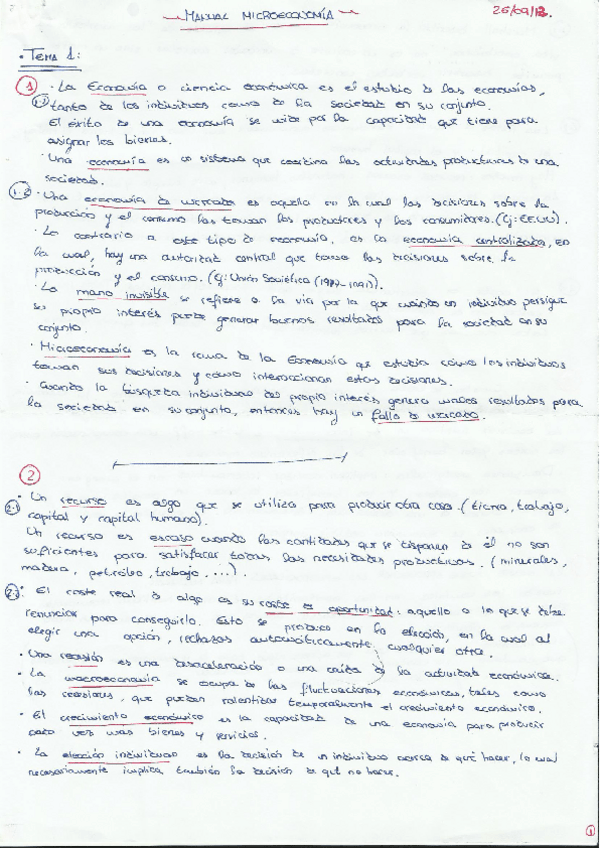 MANUAL MICROECONOMÍA
25/09/12.
· TEMA 1:
1 · La Economía o ciencia económica es el estudio de las economías,
1.1 tanto de los individuos como de la sociedad en su conjunto.
El éxito de una economía se mide por la capacidad que tiene para
asignar los bienes.
· Una economía es un sistema que coordina las actividades productivas de una
sociedad.
1.2 · Una economía de mercado es aquella en la cual las decisiones sobre la
producción y el consumo las toman los productores y los consumidores. (Ej: EE.UU).
· Lo contrario a este tipo de economía, es la economía centralizada, en
la cual, hay una autoridad central que toma las decisiones sobre la
producción y el consumo. (Ej: Unión Soviética (1917-1991).
· La mano invisible se refiere a la vía por la que cuando un individuo persigue
su propio interés puede generar buenos resultados para la sociedad en su
conjunto.
· Microeconomía es la rama de la Economía que estudia cómo los individuos
toman sus decisiones y cómo interaccionan estas decisiones.
· Cuando la búsqueda individual del propio interés genera malos resultados para
la sociedad en su conjunto, entonces hay un fallo de mercado.
2
2.1 · Un recurso es algo que se utiliza para producir otra cosa. (tierra, trabajo,
capital y capital humano).
Un recurso es escaso cuando las cantidades que se disponen de él no son
suficientes para satisfacer todas las necesidades productivas. (minerales,
madera, petróleo, trabajo, ...).
· El coste real de algo es su coste de oportunidad: aquello a lo que se debe
renunciar para conseguirlo. Esto se produce en la elección, en la cual al
elegir una opción, rechazas automáticamente cualquier otra.
· Una recesión es una desaceleración o una caída de la actividad económica.
· La macroeconomía se ocupa de las fluctuaciones económicas, tales como
las recesiones, que pueden ralentizar temporalmente el crecimiento económico.
· El crecimiento económico es la capacidad de una economía para producir
cada vez más bienes y servicios.
· La elección individual es la decisión de un individuo acerca de qué hacer, lo cual
necesariamente implica también la decisión de qué no hacer.
1